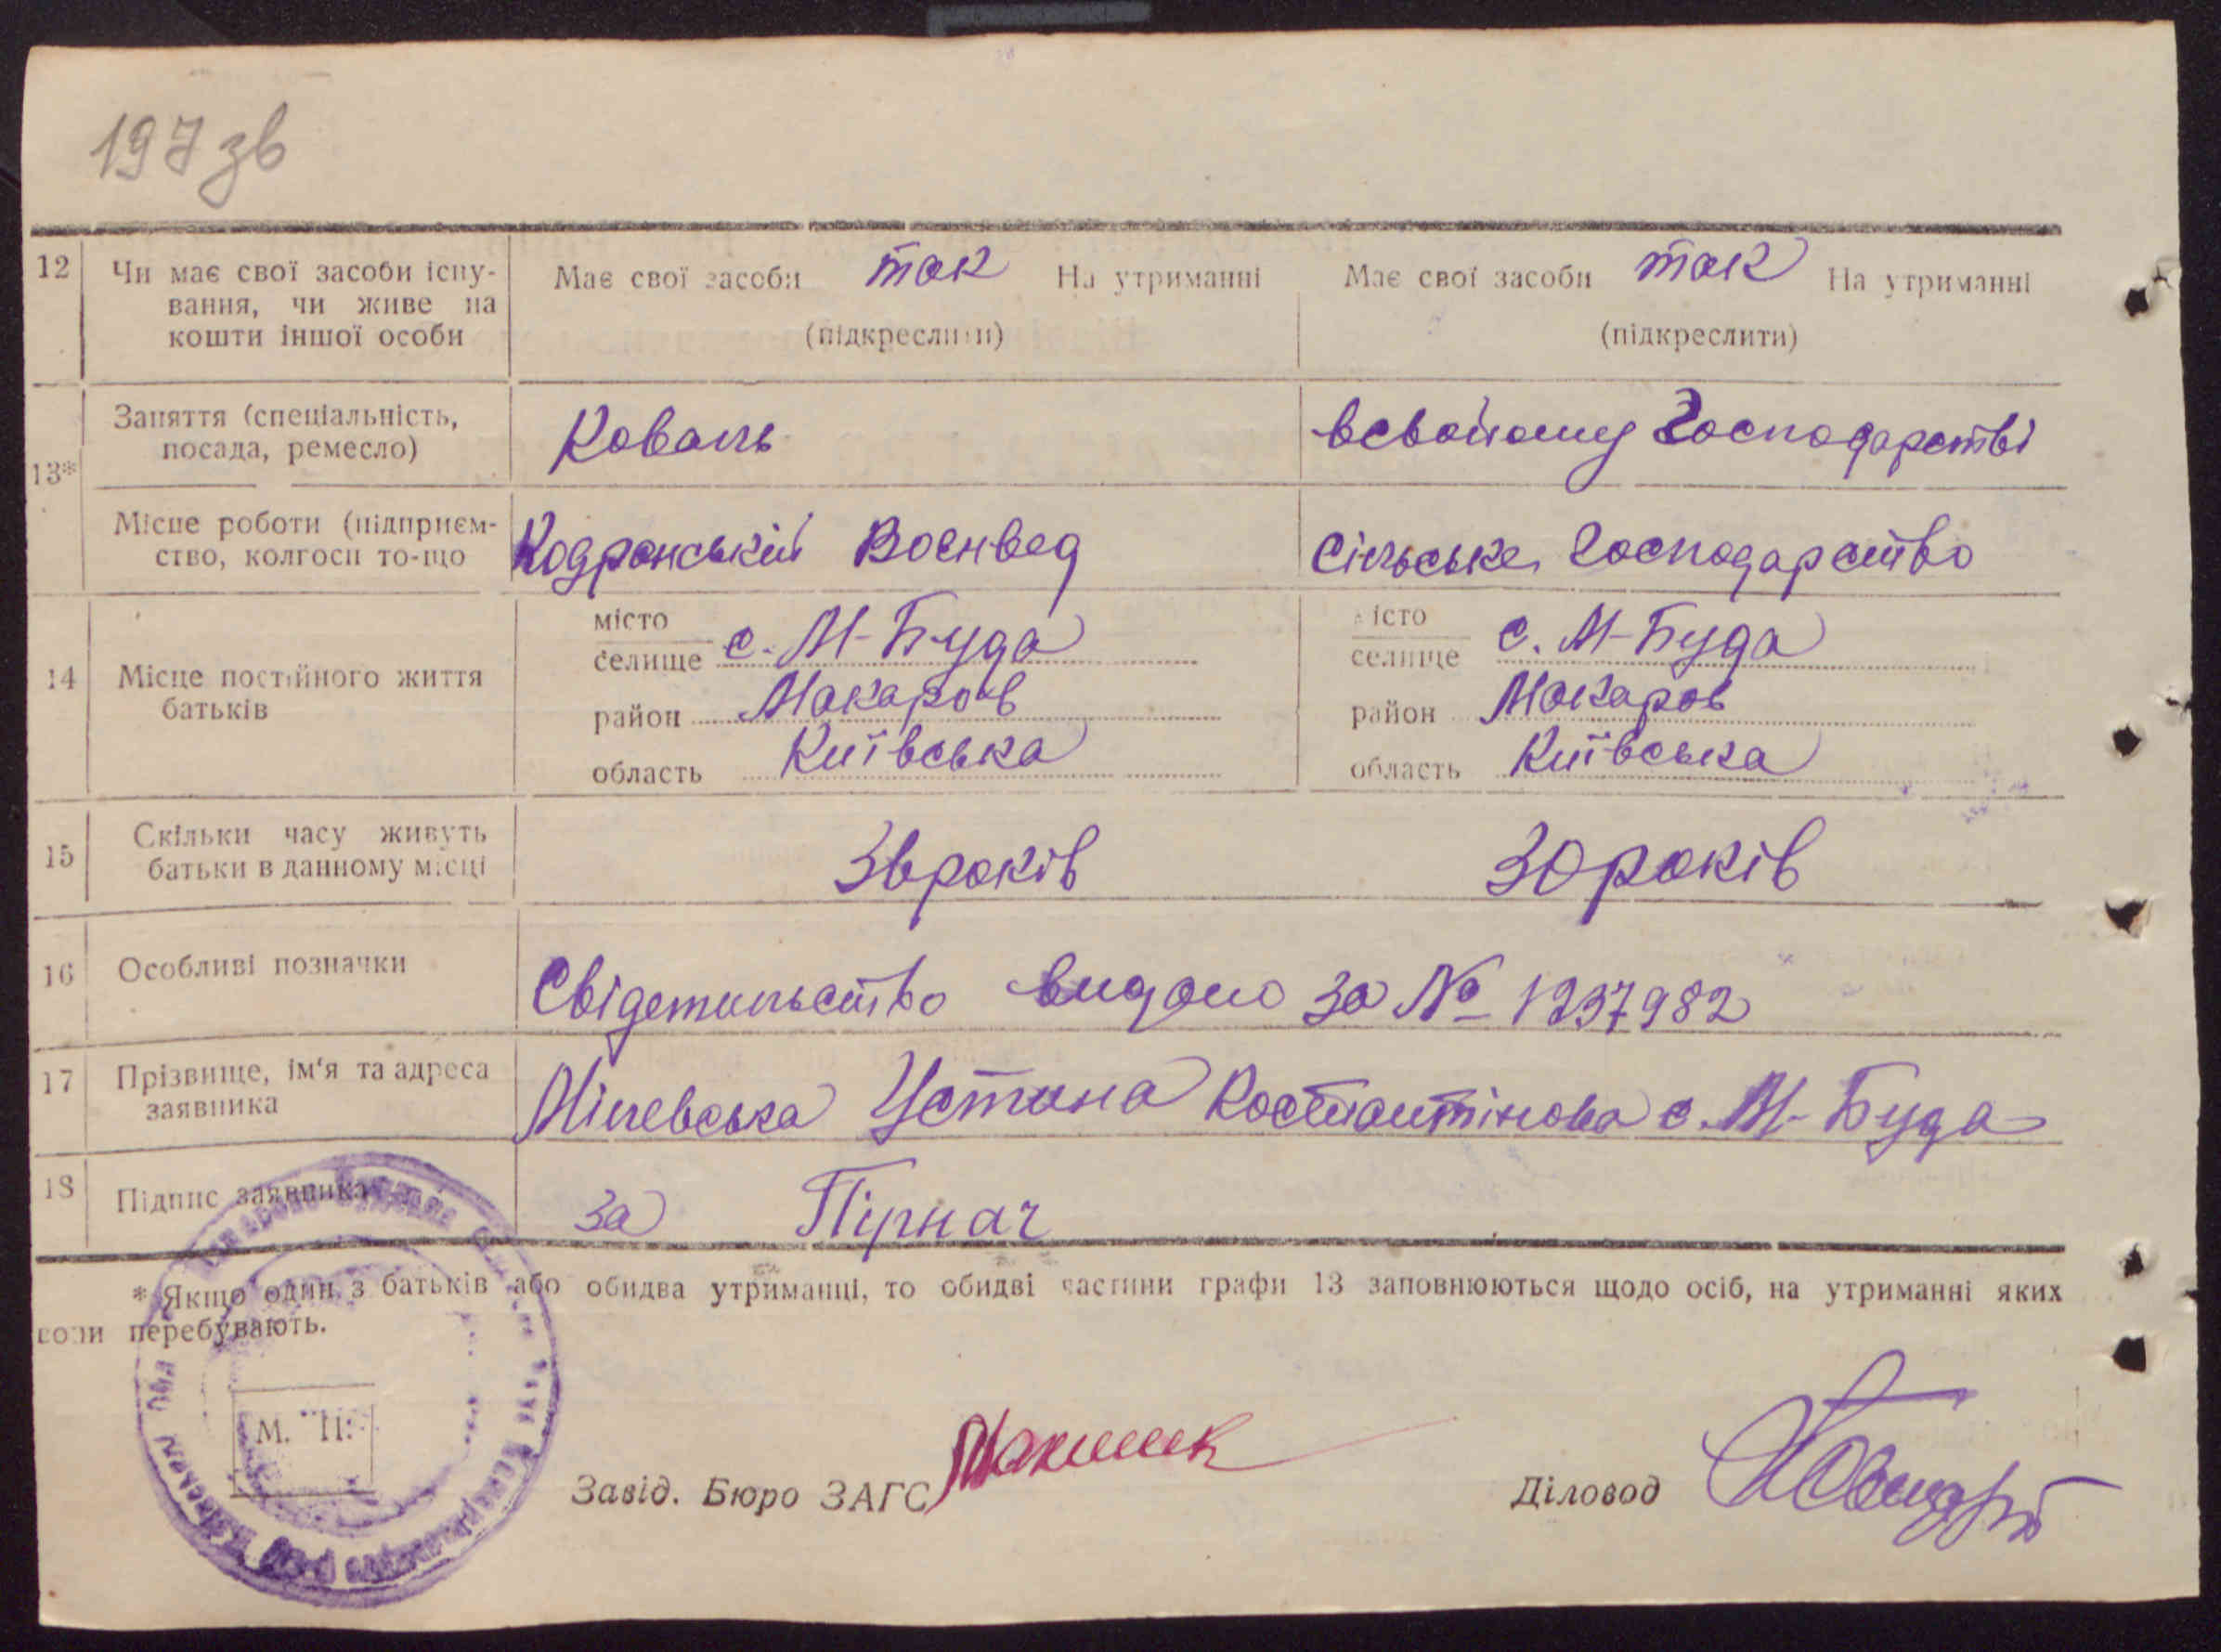 197 зв
12 Чи має свої засоби існу-
вання, чи живе на
кошти іншої особи
Має свої засоби так На утриманні
(підкреслити)
Має свої засоби так На утриманні
(підкреслити)
13*
Заняття (спеціальність,
посада, ремесло)
Коваль
всвойому господарстві
Місце роботи (підприєм-
ство, колгосп то-що
Кодранський Военвед
Сільське господарство
14 Місце постійного життя
батьків
місто
селище с. М-Буда
район Макаров
область Київська
місто
селище с. М-Буда
район Макаров
область Київська
15 Скільки часу живуть
батьки в данному місці
36 років
30 років
16 Особливі позначки
Свідетильство видано за № 1237982
17 Прізвище, ім'я та адреса
заявника
Мілевська Устина Костантінова с. М-Буда
18 Підпис заявника
за Пірнач
* Якщо один з батьків або обидва утриманці, то обидві частини графи 13 заповнюються щодо осіб, на утриманні яких
вони перебувають.
М. П.
Завід. Бюро ЗАГС
Діловод